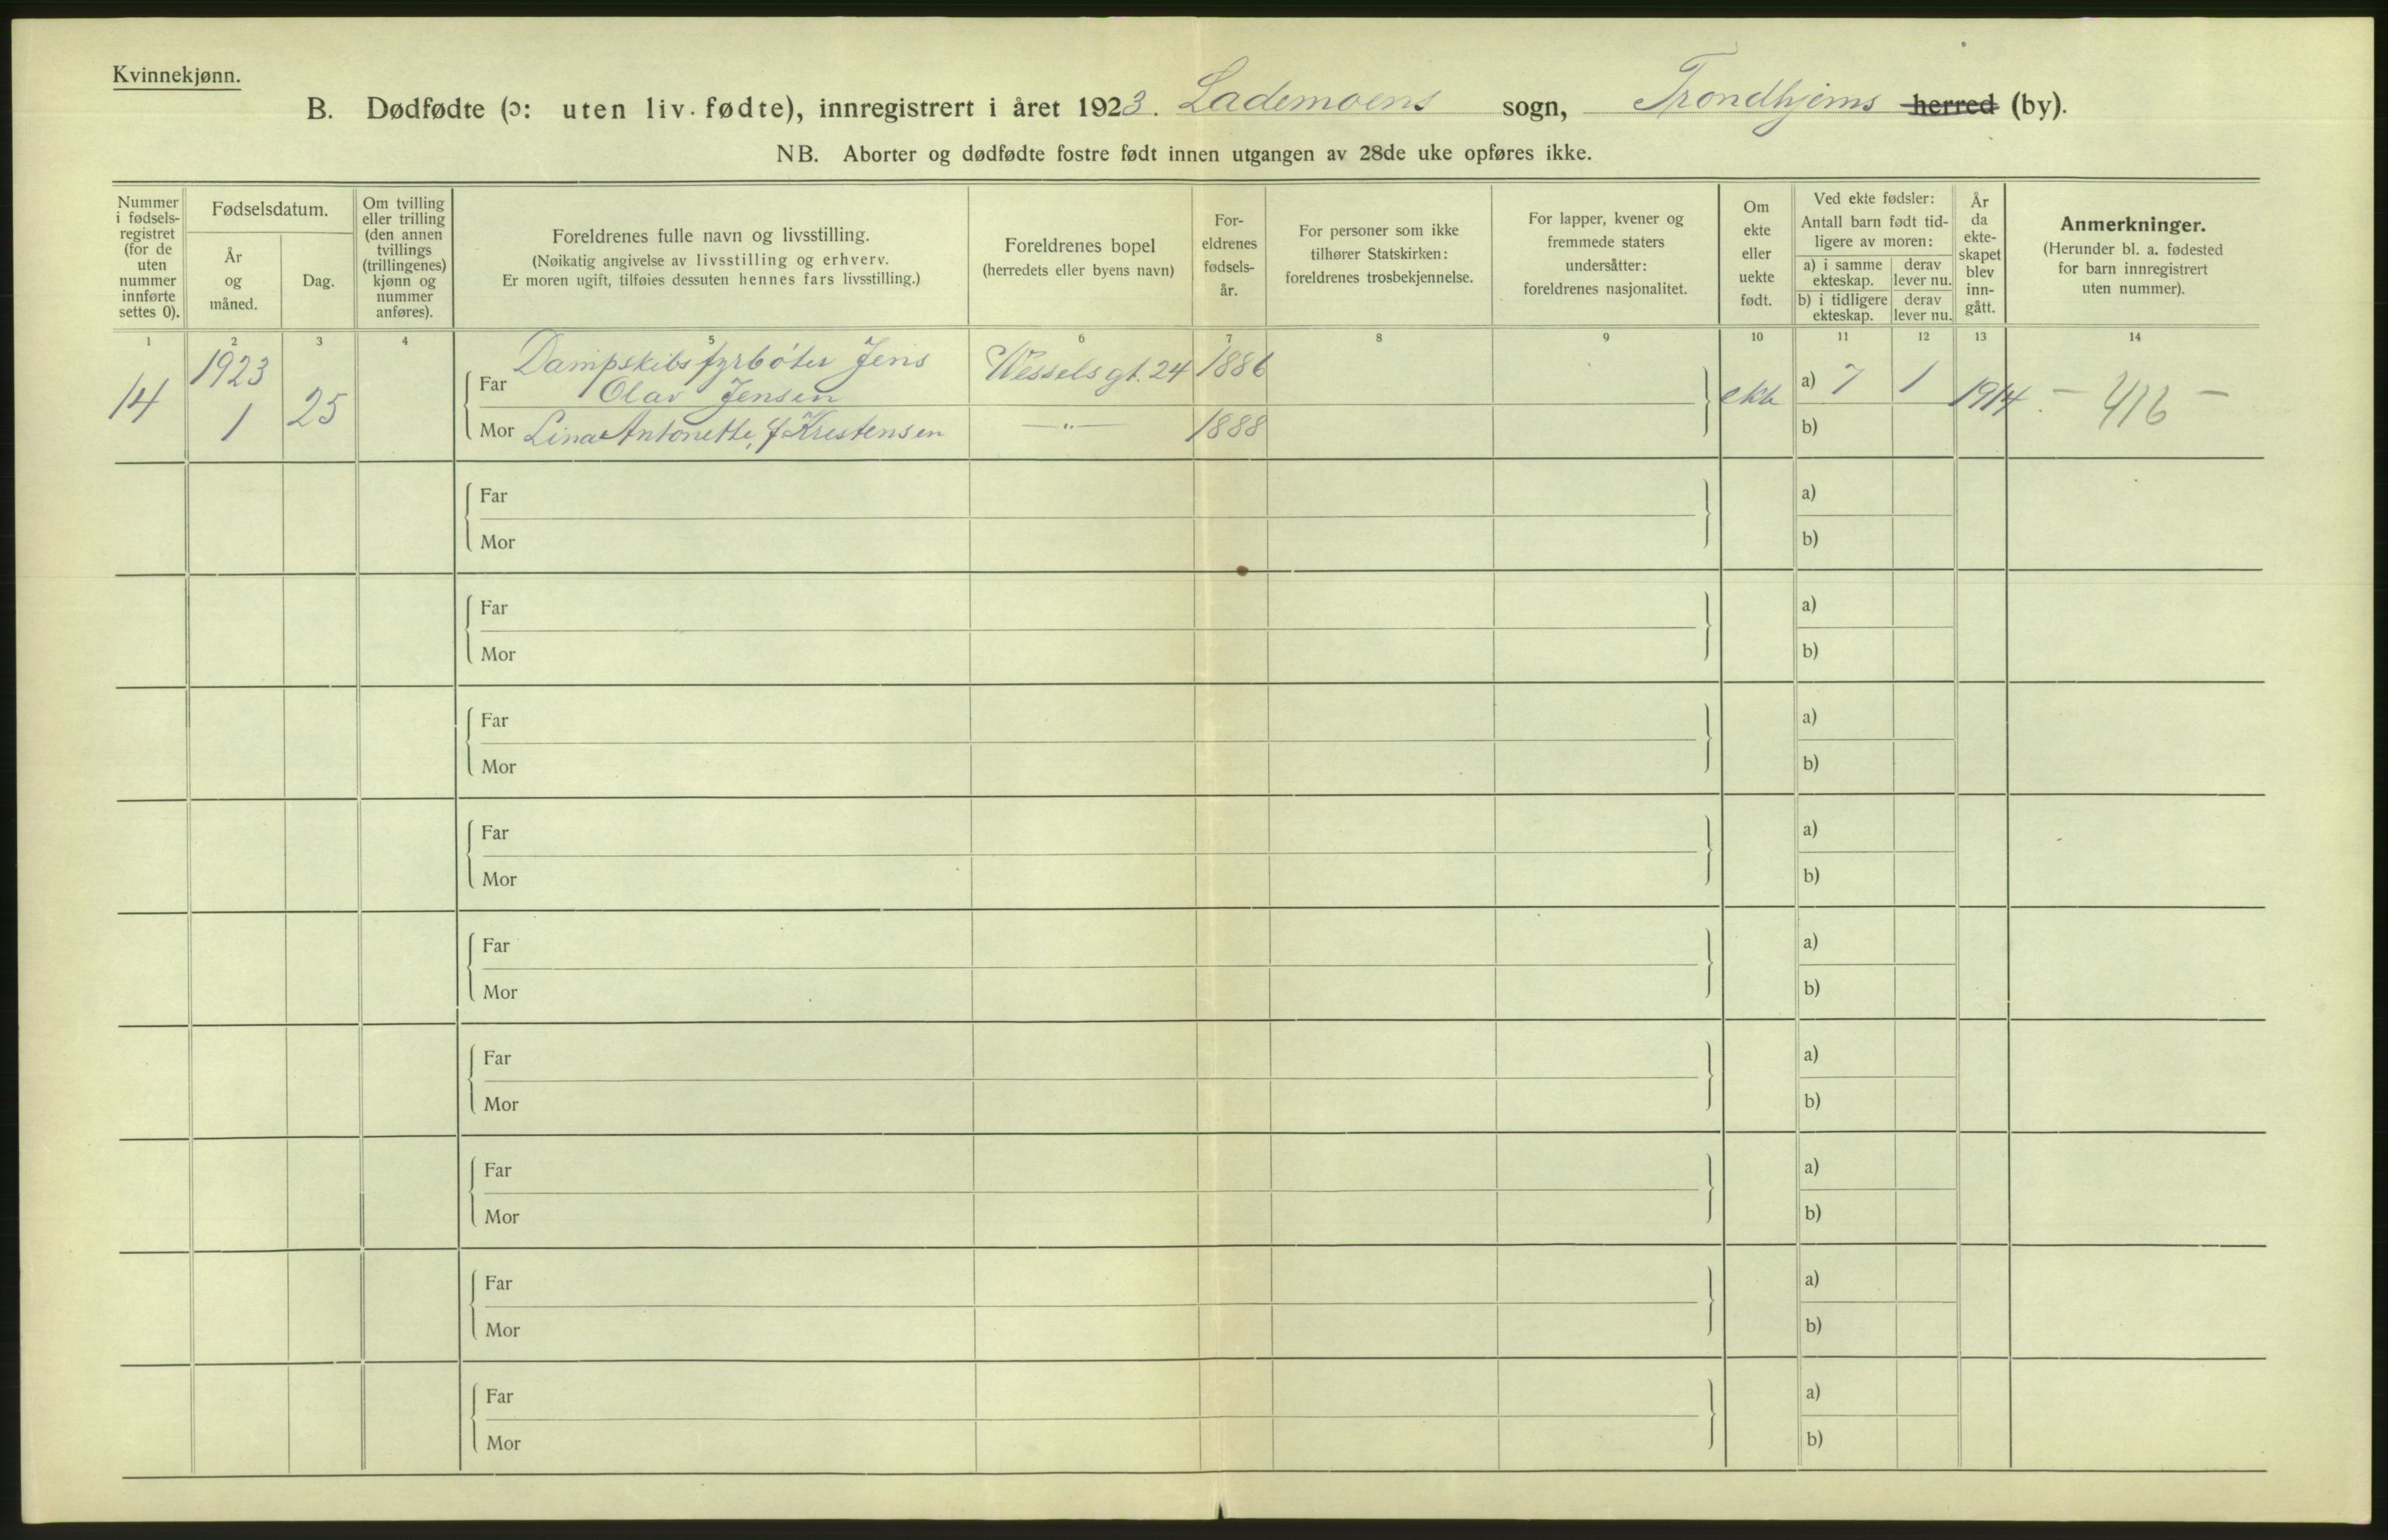 Kvinnekjønn.
B. Dødfødte (ɔ: uten liv fødte), innregistrert i året 1923. Lademoens sogn, Trondhjems herred (by).
NB. Aborter og dødfødte fostre født innen utgangen av 28de uke opføres ikke.
Nummer
i fødsels-
registret
(for de
uten
nummer
innførte
settes 0).
Fødselsdatum.
År
og
måned.
Dag.
Om tvilling
eller trilling
(den annen
tvillings
(trillingenes)
kjønn og
nummer
anføres).
Foreldrenes fulle navn og livsstilling.
(Nøikatig angivelse av livsstilling og erhverv.
Er moren ugift, tilføies dessuten hennes fars livsstilling.)
Foreldrenes bopel
(herredets eller byens navn)
For-
eldrenes
fødsels-
år.
For personer som ikke
tilhører Statskirken:
foreldrenes trosbekjennelse.
For lapper, kvener og
fremmede staters
undersåtter:
foreldrenes nasjonalitet.
Om
ekte
eller
uekte
født.
Ved ekte fødsler:
Antall barn født tid-
ligere av moren:
a) i samme
ekteskap.
derav
lever nu.
b) i tidligere
ekteskap.
derav
lever nu.
År
da
ekte-
skapet
blev
inn-
gått.
Anmerkninger.
(Herunder bl. a. fødested
for barn innregistrert
uten nummer).
1 2 3 4 5 6 7 8 9 10 11 12 13 14
14
1923
1
25
Far Dampskibsfyrbøter Jens
Olav Jensen
Wessels gt. 24
1886
Mor Lina Antonette, f Kristensen
— " —
1888
ekte
a) 7
1
b)
1914.
— 416 —
Far
Mor
a)
b)
Far
Mor
a)
b)
Far
Mor
a)
b)
Far
Mor
a)
b)
Far
Mor
a)
b)
Far
Mor
a)
b)
Far
Mor
a)
b)
Far
Mor
a)
b)
Far
Mor
a)
b)